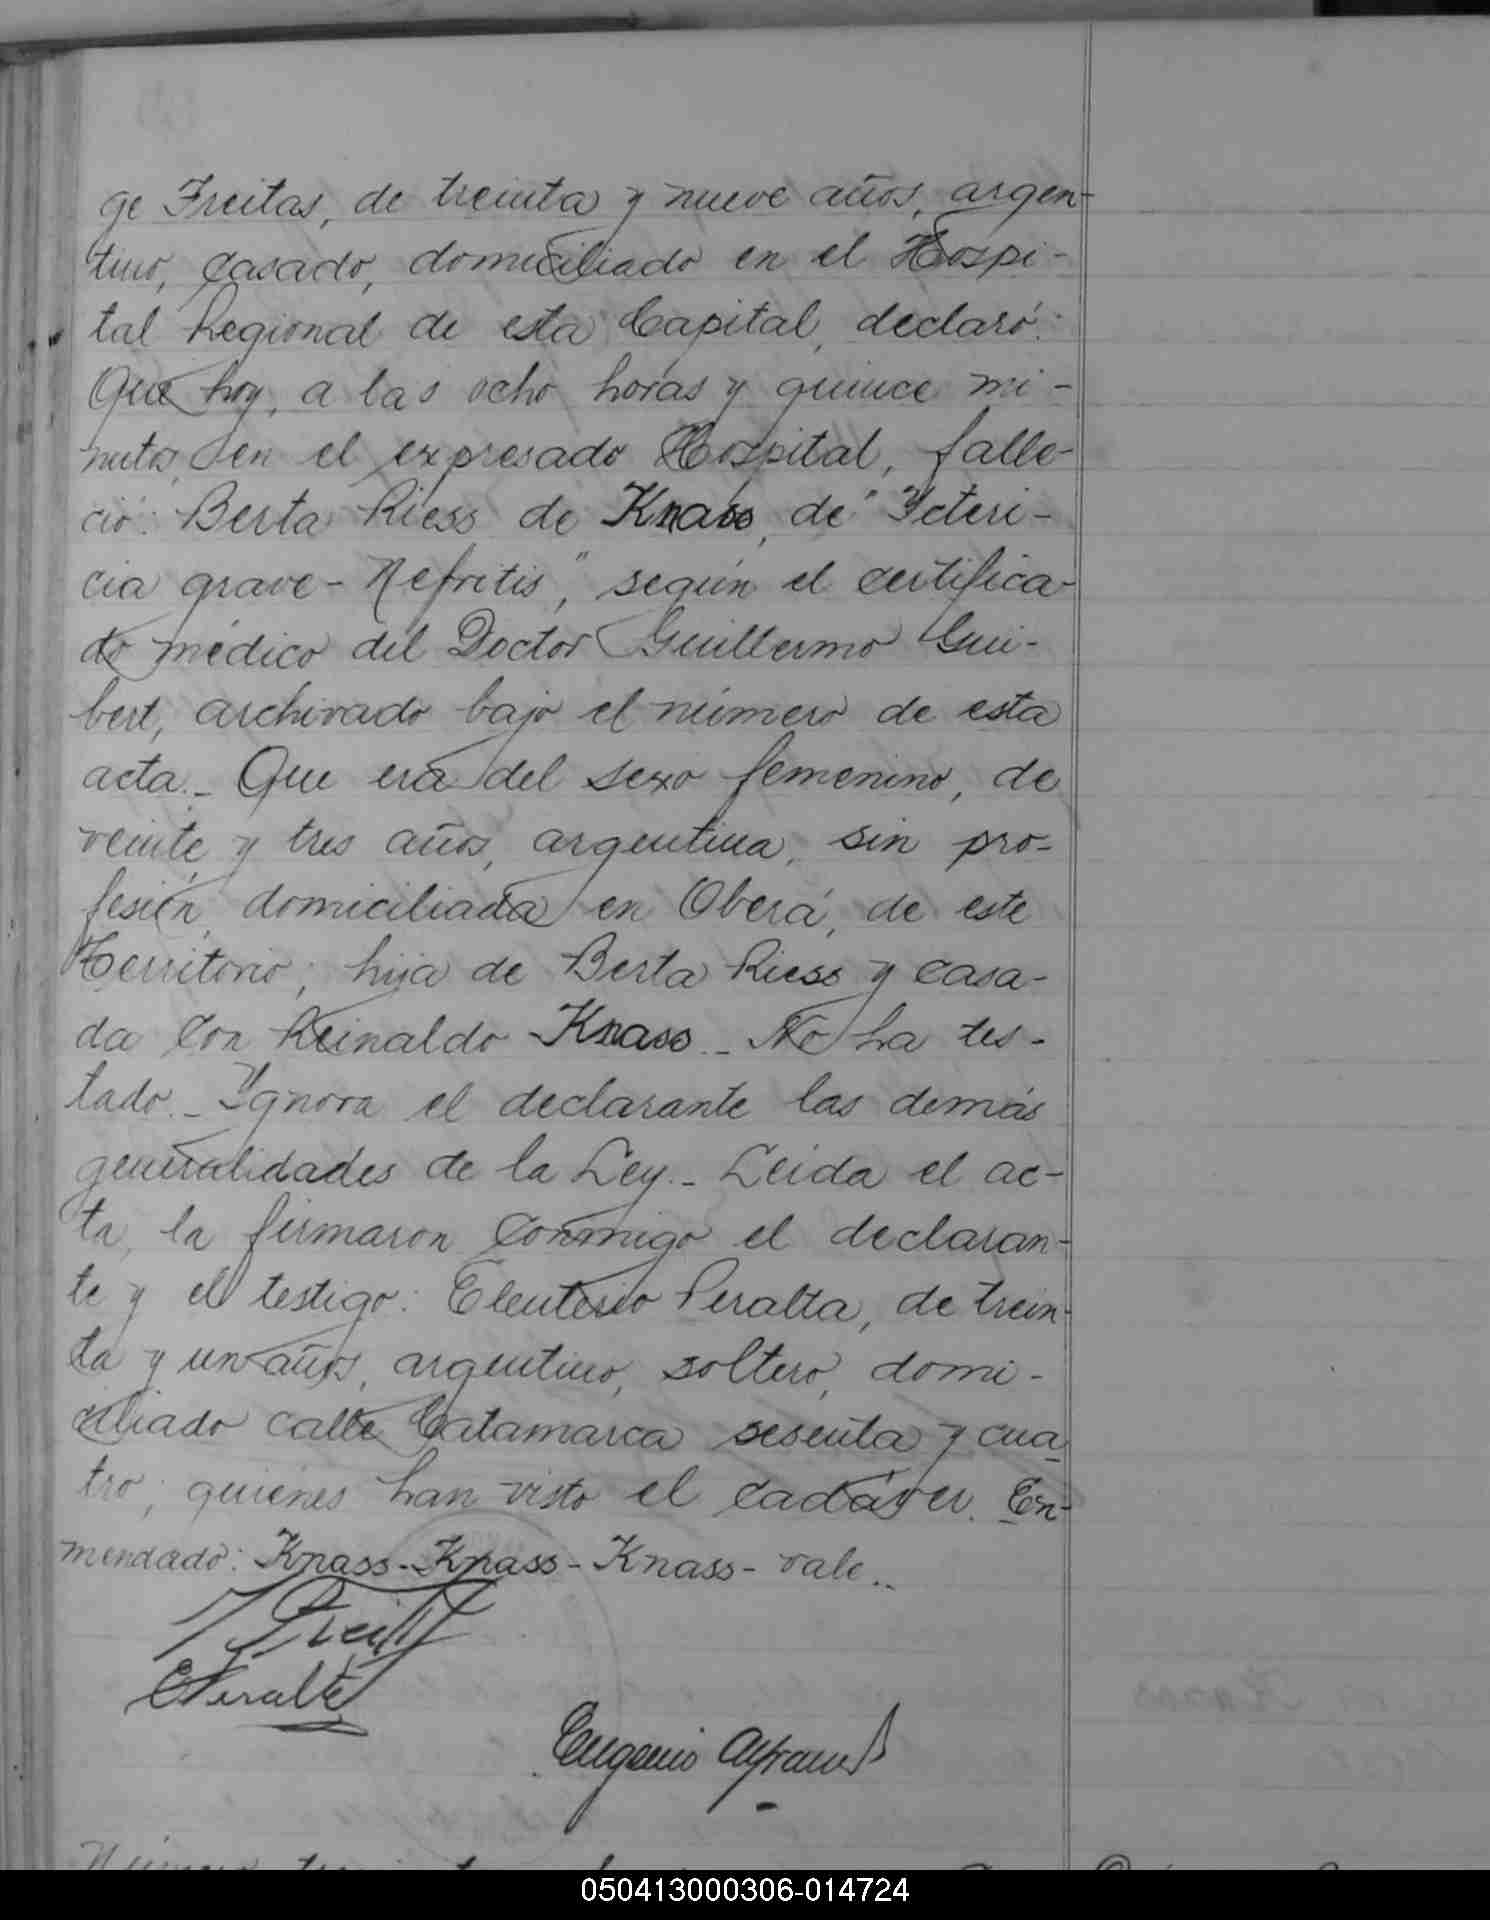 ge Freitas, de treinta y nueve años, argen-
tino, casado, domiciliado en el Hospi-
tal Regional de esta Capital, declaró:
Que hoy, a las ocho horas y quince mi-
nutos, en el expresado Hospital, falle-
ció: Berta Riess de Knass, de "Ycteri-
cia grave - Nefritis", según el certifica-
do médico del Doctor Guillermo Gui-
bert, archivado bajo el número de esta
acta._ Que era del sexo femenino, de
veinte y tres años, argentina, sin pro-
fesión, domiciliada en Oberá, de este
Territorio; hija de Berta Riess y casa-
da con Reinaldo Knass._ No ha tes-
tado._ Ygnora el declarante las demás
generalidades de la Ley._ Leida el ac-
ta, la firmaron conmigo el declaran-
te y el testigo: Eleuterio Peralta, de trein-
ta y un años, argentino, soltero, domi-
ciliado calle Catamarca sesenta y cua
tro; quienes han visto el cadáver. En-
mendado: Knass-Knass-Knass-vale..
EPeralta
Eugenio
050413000306-014724